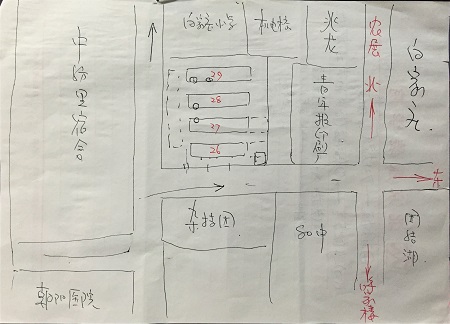 中纺里宿舍
白家庄小学
机电院
兆龙
农展
北
白家庄
29
28
27
26
青年报印刷厂
东
杂技团
80中
团结湖
呼家楼
朝阳医院